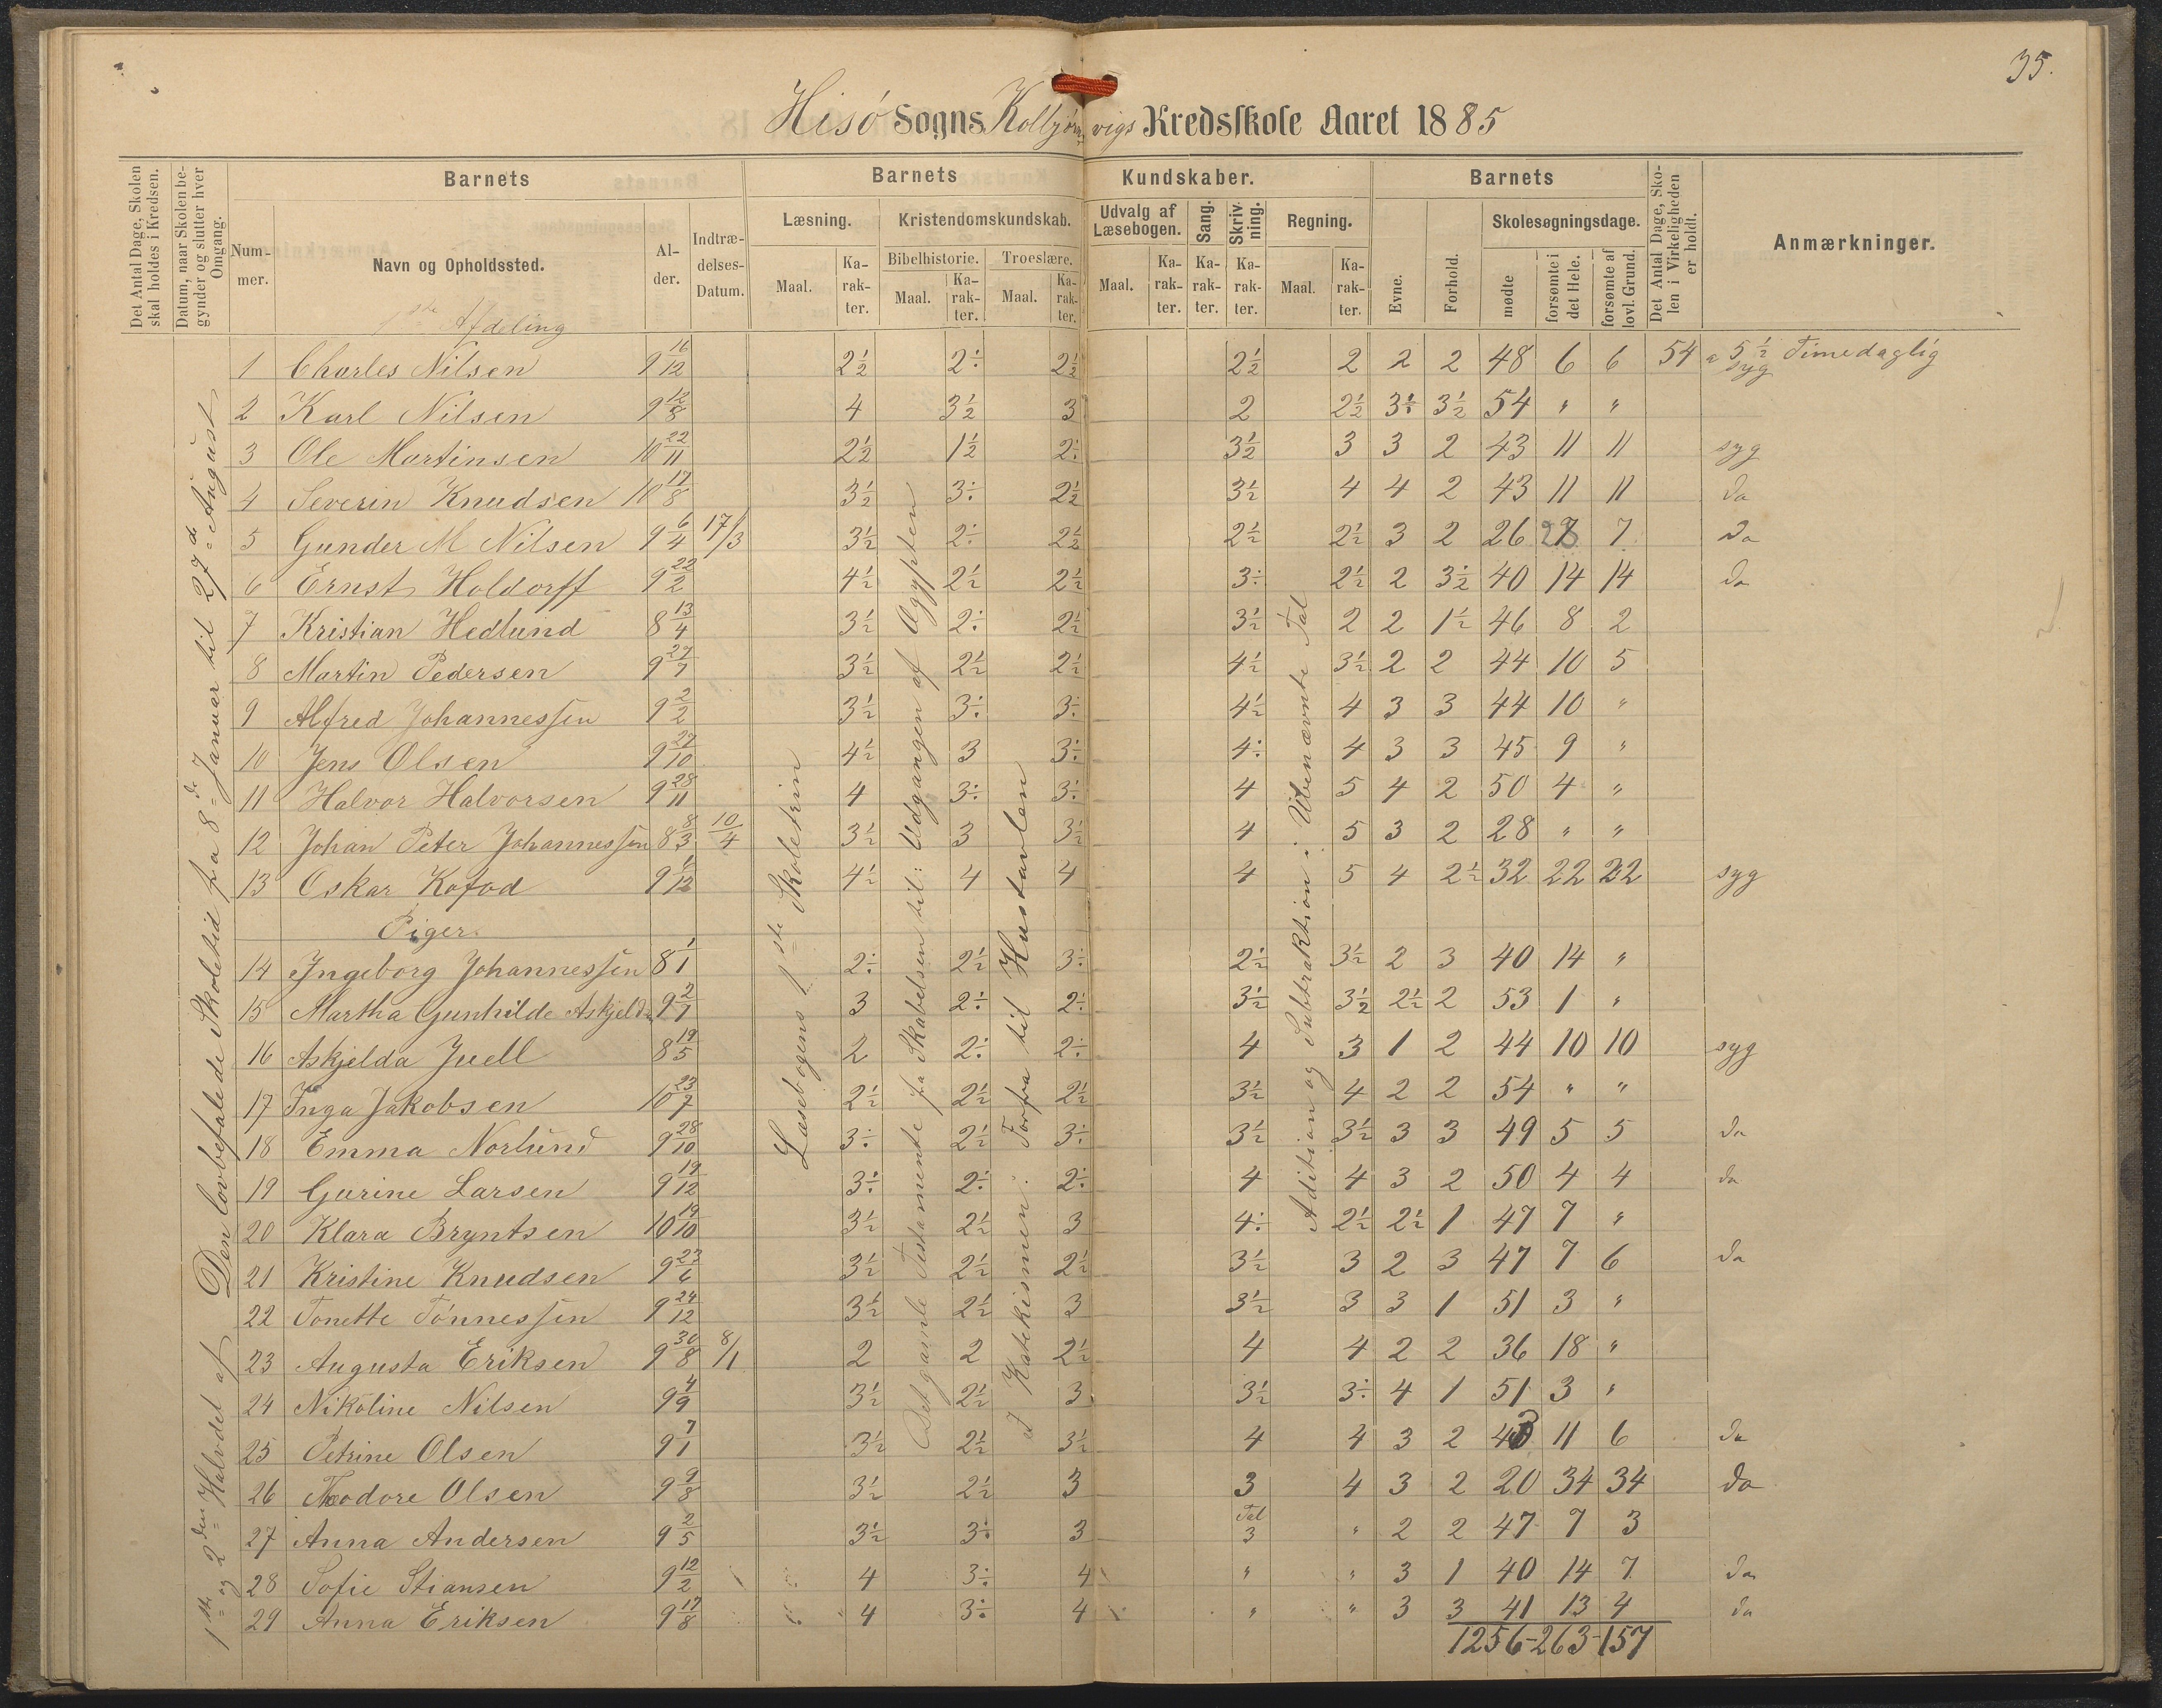 35.
Hisö Sogns Kolbjørnvigs Kredsskole Aaret 1885
Det Antal Dage, Skolen skal holdes i Kredsen.
Datum, naar Skolen begynder og slutter hver Omgang.
Barnets
Barnets
Kundskaber.
Barnets
Det Antal Dage, Skolen i Virkeligheden er holdt.
Anmærkninger.
Nummer.
Navn og Opholdssted.
Alder.
Indtrædelses-Datum.
Læsning.
Kristendomskundskab.
Udvalg af Læsebogen.
Sang.
Skrivning.
Regning.
Evne.
Forhold.
Skolesøgningsdage.
Bibelhistorie.
Troeslære.
Maal.
Karakter.
Maal.
Karakter.
Maal.
Karakter.
Maal.
Karakter.
Karakter.
Karakter.
Maal.
Karakter.
mødte
forsømte i det Hele.
forsømte af lovl. Grund.
1ste Afdeling
1ste og 2den Halvdel af Den lovbefalede Skoletid fra 8de Januar til 27de August
Læsebogens 1ste Skoletrin
Det gamle Testamente fra Skabelsen til: Udgangen af Ægypten
I Katekismen: Forfra til Hustavlen
Adition og Subtraktion i Ubenævnte Tal
1 Charles Nilsen 9 16/12 2½ 2÷ 2½ 2½ 2 2 2 48 6 6 54 a 5½ Time daglig syg
2 Karl Nilsen 9 12/8 4 3½ 3 2 2½ 3÷ 3½ 54 " "
3 Ole Martinsen 10 22/11 2½ 1½ 2÷ 3½ 3 3 2 43 11 11 syg
4 Severin Knudsen 10 17/8 3½ 3÷ 2½ 3½ 4 4 2 43 11 11 do
5 Gunder M Nilsen 9 6/4 17/3 3½ 2÷ 2½ 2½ 2½ 3 2 26 28 7 do
6 Ernst Holdorff 9 22/2 4½ 2½ 2½ 3÷ 2½ 2 3½ 40 14 14 do
7 Kristian Hedlund 8 13/4 3½ 2÷ 2½ 3½ 2 2 1½ 46 8 2
8 Martin Pedersen 9 27/7 3½ 2½ 2½ 4½ 3½ 2 2 44 10 5
9 Alfred Johannessen 9 2/2 3½ 3÷ 3÷ 4½ 4 3 3 44 10 "
10 Jens Olsen 9 27/10 4½ 3 3÷ 4÷ 4 3 3 45 9 "
11 Halvor Halvorsen 9 28/11 4 3÷ 3÷ 4 5 4 2 50 4 "
12 Johan Peter Johannessen 8 8/3 10/4 3½ 3 3½ 4 5 3 2 28 " "
13 Oskar Kofod 9 1/12 4½ 4 4 4 5 4 2½ 32 22 22 syg
Piger.
14 Ingeborg Johannessen 8 1/1 2÷ 2½ 3÷ 2½ 3½ 2 3 40 14 "
15 Martha Gunhilde Askjelds 9 2/7 3 2÷ 2÷ 3½ 3½ 2½ 2 53 1 "
16 Askjelda Juell 8 19/5 2 2÷ 2÷ 4 3 1 2 44 10 10 syg
17 Inga Jakobsen 10 23/7 2½ 2½ 2½ 3½ 4 2 2 54 " "
18 Emma Norlund 9 28/10 3÷ 2½ 3÷ 3½ 3½ 3 3 49 5 5 do
19 Gurine Larsen 9 19/12 3÷ 2÷ 2÷ 4 4 3 2 50 4 4 do
20 Klara Bryntsen 10 19/10 3½ 2½ 3 4÷ 2½ 2½ 1 47 7 "
21 Kristine Knudsen 9 23/6 3½ 2½ 2½ 3½ 3 2 3 47 7 6 do
22 Tonette Tønnessen 9 24/12 3½ 2½ 3 3½ 3 3 1 51 3 "
23 Augusta Eriksen 9 30/8 8/1 2 2 2½ 4 4 2 2 36 18 "
24 Nikoline Nilsen 9 4/9 3½ 2½ 3 3½ 3÷ 4 1 51 3 "
25 Petrine Olsen 9 7/1 3½ 2½ 3½ 4 4 3 2 43 11 6 do
26 Theodore Olsen 9 9/8 3½ 2½ 3 3 4 3 2 20 34 34 do
27 Anna Andersen 9 2/5 3½ 3÷ 3 Tal 3 " 2 2 47 7 3
28 Sofie Stiansen 9 12/2 4 3÷ 4 " " 3 1 40 14 7 do
29 Anna Eriksen 9 17/8 4 3÷ 4 " " 3 3 41 13 4 do
1256-263-157